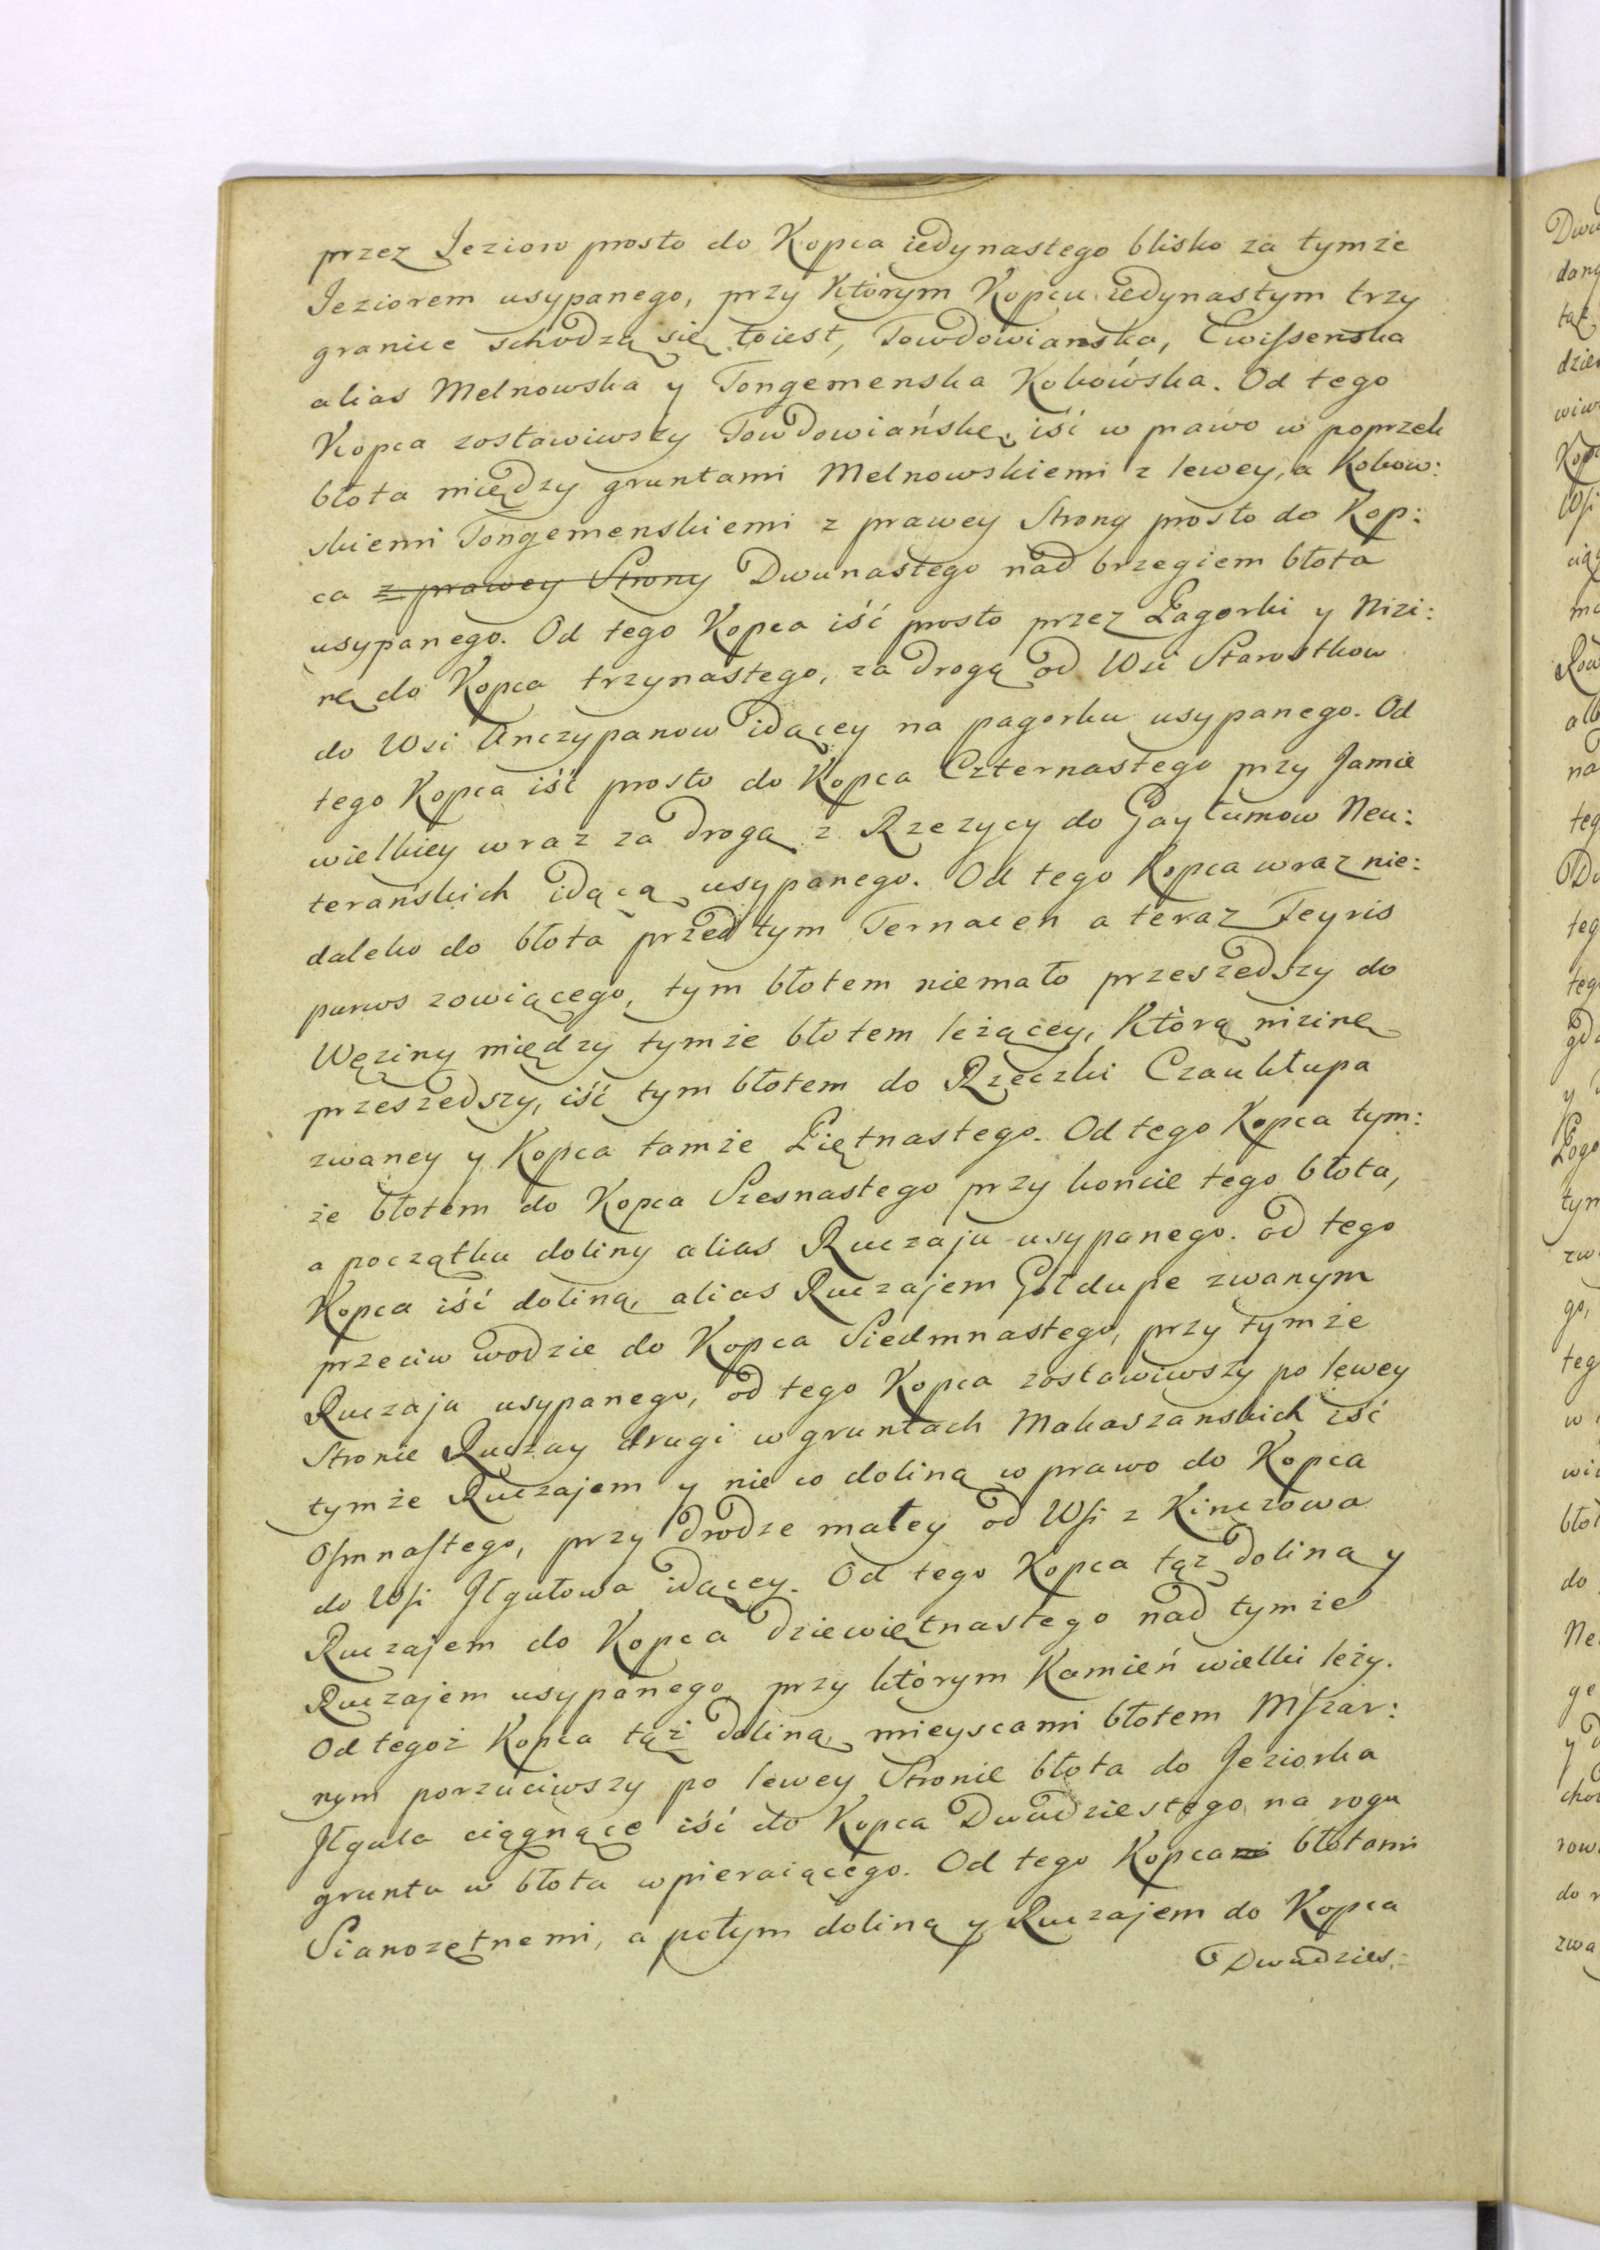 przez Jezioro prosto do Kopca iedynastego blisko za tymże
Jeziorem usypanego, przy Którym Kopcu iedynastym trzy
granice schodzą się toiest, Towdowianska, Cwissenska
alias Melnowska y Tongemenska Kobowska. Od tego
Kopca zostawiwszy Towdowiańskę, iść w prawo w poprzek
błota między gruntami Melnowskiemi z lewey, a Kobow:
skiemi Tongemenskiemi z prawey Strony prosto do Kop:
ca z prawey Strony Dwunastego nad brzegiem błota
usypanego. Od tego Kopca iść prosto przez Pagorki y Nizi:
nę do Kopca trzynastego, za drogą od Wsi Starostkow
do Wsi Anczypanow idącey na pagorku usypanego. Od
tego Kopca iść prosto do Kopca Czternastego przy Jamie
wielkiey wraz za drogą z Rzezycy do Gaytumow Neu:
terańskich idącą usypanego. Od tego Kopca wraz nie:
daleko do błota przed tym Ternacen a teraz Feyris
purws zowiącego, tym błotem niemało przeszedszy do
Węziny między tymże błotem leżącey, Którą nizinę
przeszedszy, iść tym błotem do Rzeczki Czaukłupa
zwaney y Kopca tamże Piętnastego. Od tego Kopca tym:
że błotem do Kopca Szesnastego przy koncie tego błota,
a początku doliny alias Ruczaju usypanego. od tego
Kopca iść doliną, alias Ruczajem Gołdupe zwanym
przeciw wodzie do Kopca Siedmnastego, przy tymże
Ruczaju usypanego, od tego Kopca zostawiwszy po lewey
Stronie Ruczay drugi w gruntach Makaszanskich iść
tymże Ruczajem y nieco doliną w prawo do Kopca
Osmnastego, przy drodze małey od Wsi z Kinczowa
do Wsi Jłgułowa idącey. Od tego Kopca tąż doliną y
Ruczajem do Kopca dziewiętnastego nad tymże
Ruczajem usypanego przy którym Kamień wielki leży.
Od tegoż Kopca tąż doliną, mieyscami błotem Mszar:
nym porzuciwszy po lewey Stronie błota do Jeziorka
Jłgula ciągnące iść do Kopca Dwudziestego na rogu
gruntu w błota wpieraiącego. Od tego Kopca błotami
Sianożętnemi, a potym doliną y Ruczajem do Kopca
Dwudzies: